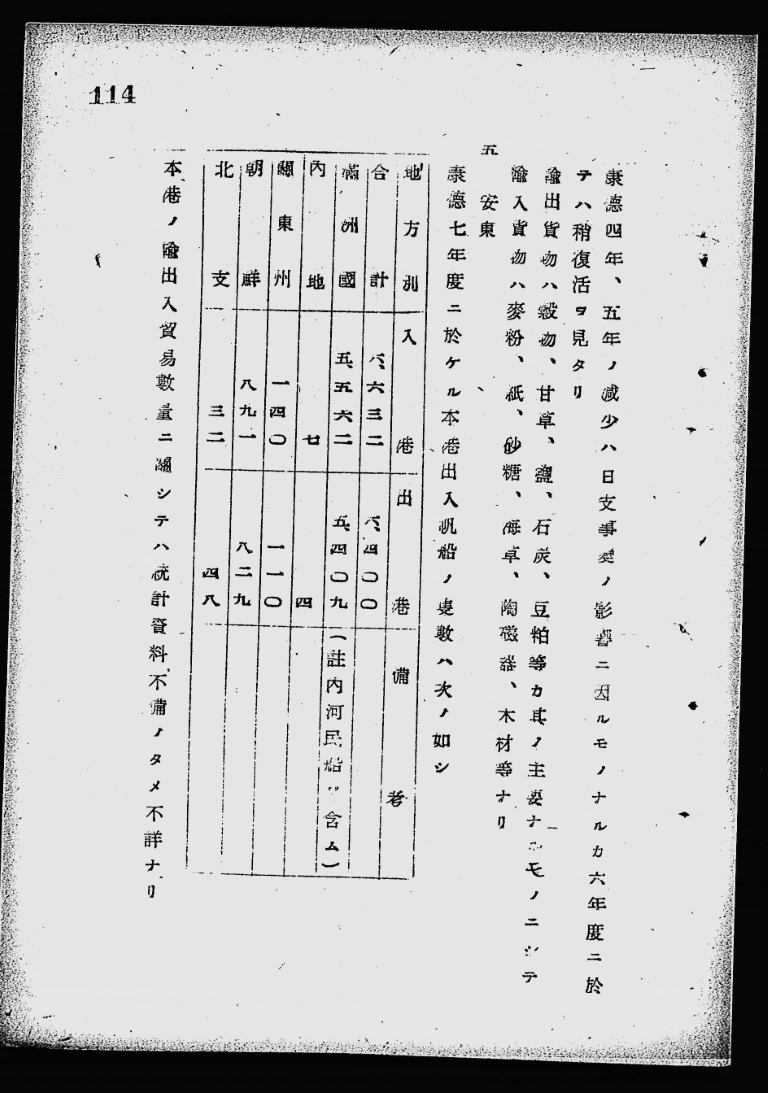 114
康德四年、五年ノ減少ハ日支事変ノ影響ニ因ルモノナルカ六年度ニ於
テハ稍復活ヲ見タリ
輸出貨物ハ穀物、甘草、鹽、石炭、豆粕等カ其ノ主要ナルモノニシテ
輸入貨物ハ麥粉、紙、砂糖、海草、陶磁器、木材等ナリ
五 安東
康德七年度ニ於ケル本港出入帆船ノ隻數ハ次ノ如シ
地方別 入港 出港 備考
合計 六、六三二 六、四〇〇
滿洲國 五、五六二 五、四〇九 (註內河民船ヲ含ム)
內地 七 四
關東州 一四〇 一一〇
朝鮮 八九一 八二九
北支 三二 四八
本港ノ輸出入貿易數量ニ關シテハ統計資料不備ノタメ不詳ナリ